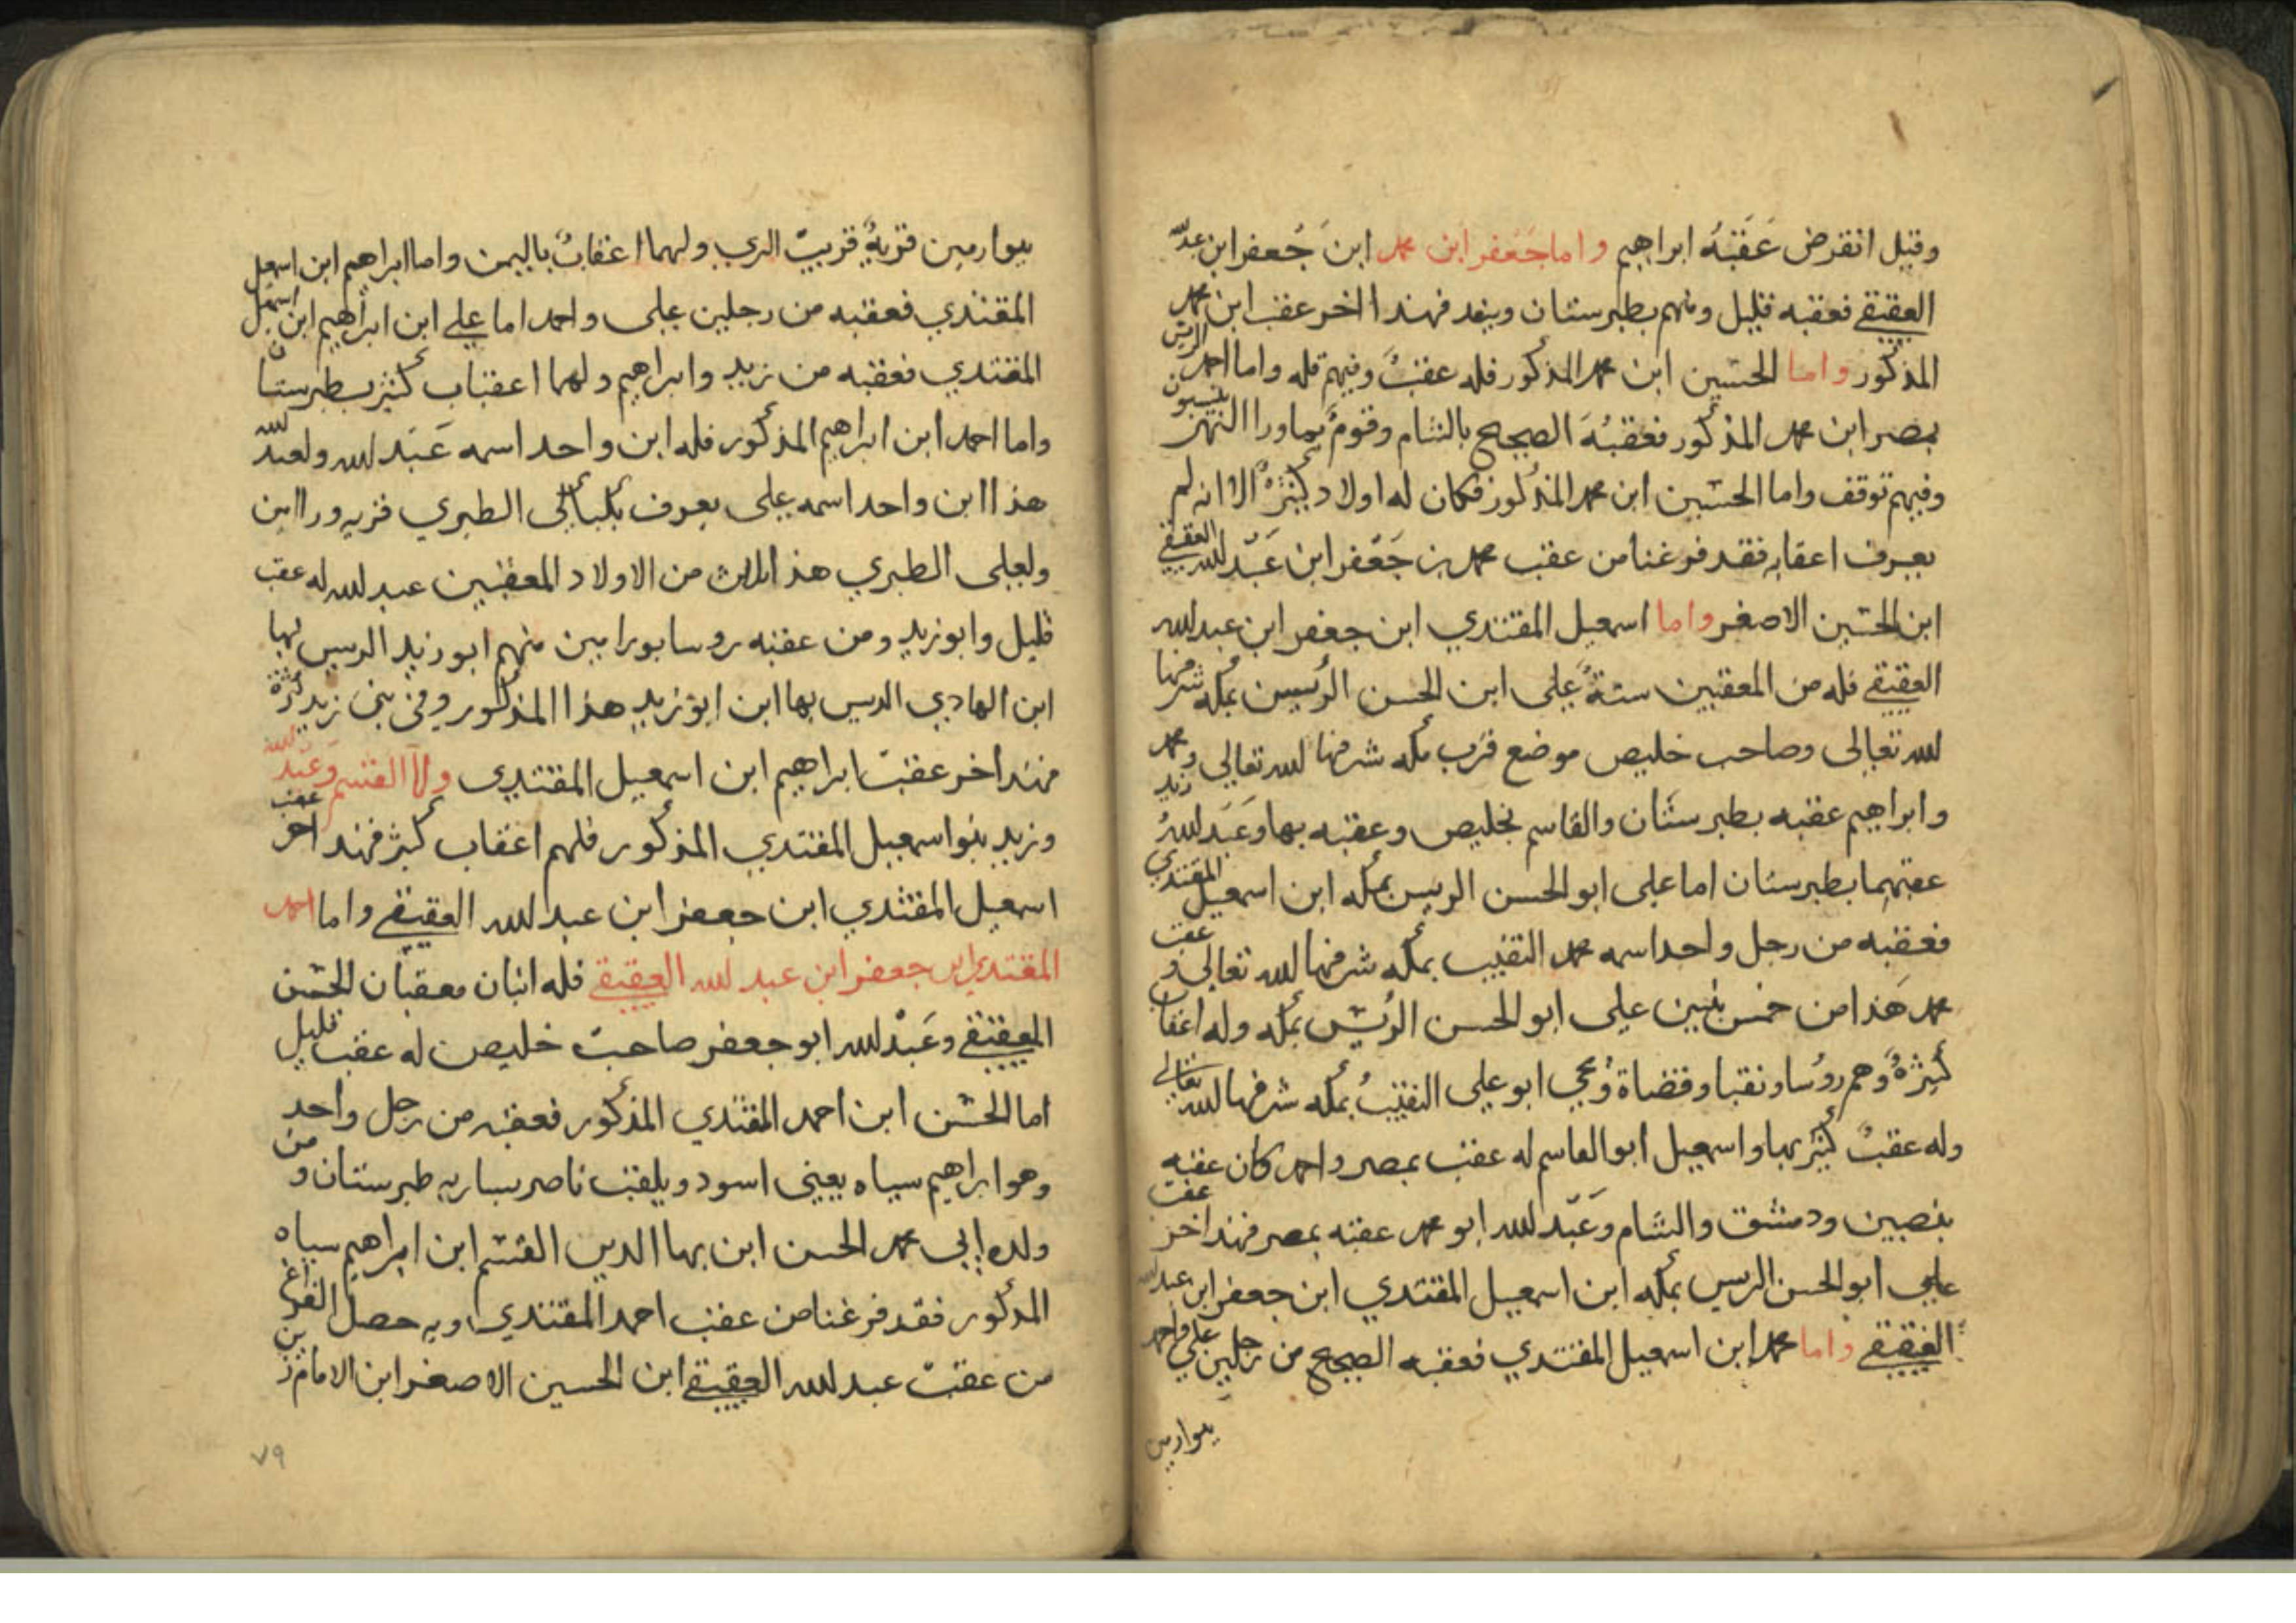 وقيل انقرض عَقَبَهُ ابراهيم واما جَعْفر ابن محمد ابن جُعفر ابن عبدالله
العقيقي فعقبه قليل ومنهم بطبرستان وبغد فهذا اخر عقب ابن محمد
المذكور واما الحسين ابن محمد المذكور فله عقبٌ وفيهم قله واما احمد الريس
بمصر ابن محمد المذكور فعقبُهَ الصحيح بالشام وقومٌ بماورا النهر ينتسبون
وفيهم توقف واما الحسين ابن محمد المذكور فكان له اولاد كثيرةٌ الا انه لم
يعرف اعقابه فقد فرغنا من عقب محمد بن جَعْفر ابن عَبْد الله العقيقي
ابن الحسَين الاصغر واما اسمعيل المقتدي ابن جعفر ابن عبد الله
العقيقي فله من المعقبين ستةٌ علي ابن الحسن الرُئيسين بمكه شرفها
الله تعالى وصاحب خليص موضع قرب مكه شرفها الله تعالي ومحمد وزيد
وابراهيم عقبه بطبرستان والقاسم بخليص وعقبه بها وَعَبَد اللهُ
عقبهما بطبرستان اما علي ابو الحسن الريس بمكه ابن اسمعيل المقتدي
فعقبه من رجل واحد اسمه محمد النقيب بمكه شرفها الله تعالي وعقب
محمد هَذا من خمس بنين علي ابو الحسن الرُئيس بمكه وله اعقاب
كثيرَةٌ وَهم روُسا ونقبا وقضاة وُيحي ابو علي النقيبُ بمكه شرفها الله تعالي
وله عقبٌ كثير بها واسمعيل ابو القاسم له عقب بمصر واحمد كان عقبه
بنصبين ودمشق والشام وَعَبْد الله ابو محمد عقبه بمصر فهذا اخر عقب
علي ابو الحسن الريس بمكه ابن اسمعيل المقتدي ابن جعفر ابن عبد الله
العقيقي واما محمد ابن اسمعيل المقتدي فعقبه الصحيح من رجلين علي واحمد
بيوارمين
بيوارمين قريةٌ قريبٌ الري ولهما اعقابٌ باليمن واما ابراهيم ابن اسمعيل
المقتدي فعقبه من رجلين علي واحمد اما علي ابن ابراهيم ابن اسمعيل
المقتدي فعقبه من زيد وابراهيم ولهما اعقاب كثير بطبرستان
واما احمد ابن ابراهيم المذكور فله ابن واحد اسمه عَبَد الله ولعبد الله
هذا ابن واحد اسمه علي يعرف الطبري قريه ورامين
ولعلي الطبري هذا ثلاث من الاولاد المعقبين عبد الله له عقب
قليل وابو زيد ومن عقبه روسا بورامين منهم ابو زيد الريس بها
ابن الهادي الريس بها ابن ابو زيد هذا المذكور وفى بنى زيد كثرة
فهذا اخر عقبَ ابراهيم ابن اسمعيل المقتدي واما القسم وَعَبَد الله
وزيد بنو اسمعيل المقتدي المذكور فلهم اعقاب كثير فهذا اخر عقب
اسمعيل المقتدي ابن جعفر ابن عبد الله العقيقي واما احمد
المقتدي ابن جعفر ابن عبد الله العقيقي فله اثنان معقبان الحسَن
العقيقي وعَبْد الله ابو جعفر صاحبَ خليص له عقب قليل
اما الحسَن ابن احمد المقتدي المذكور فعقبه من رجل واحد
وهو ابراهيم سياه يعنى اسود ويلقب ناصر بساريه طبرستان ومن
ولده ابي محمد الحسن ابن بها الدين القسَم ابن ابراهيم سياه
المذكور فقد فرغنا من عقب احمد المقتدي وبه حصل الفراغ
من عقبَ عبد الله العقيقي ابن الحسين الاصغر ابن الامام زين
٧٩